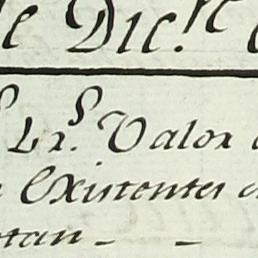 e Dic.re
Lr.s Valor
Existentes
tan